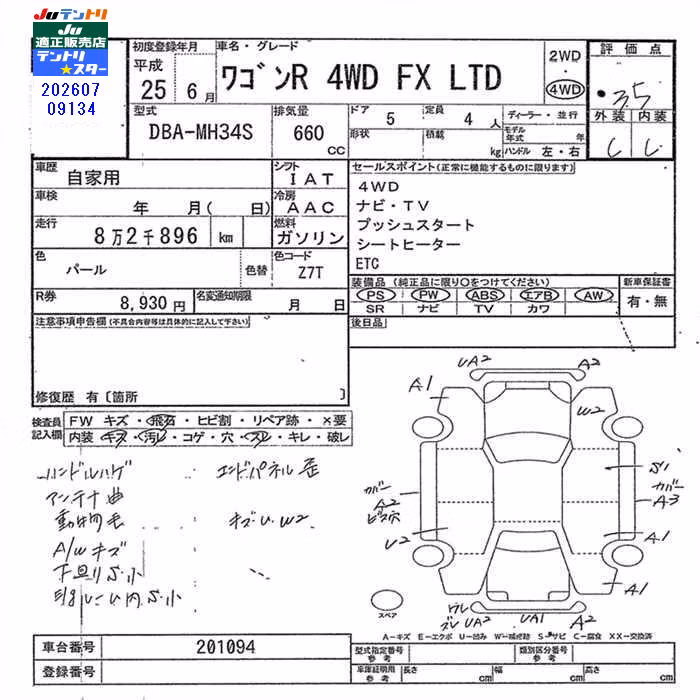 Juテントリ
Ju
適正販売店
テントリ
★スター
202607
09134
初度登録年月
平成
25 6月
車名・グレード
ワゴンR 4WD FX LTD
2WD
・
4WD
評価点
3.5
外装 内装
C C
型式
DBA-MH34S
排気量
660
CC
ドア 5
定員 4人
形状
積載 kg
ディーラー・並行
モデル年式 年
ハンドル 左・右
車歴
自家用
シフト
IAT
車検
年 月( 日)
冷房
AAC
走行
8万2千896 km
燃料
ガソリン
色
パール
色替
色コード
Z7T
R券
8,930円
名変通知期限
月 日
セールスポイント(正常に機能するものに限ります)
4WD
ナビ・TV
プッシュスタート
シートヒーター
ETC
装備品(純正品に限り○をつけてください)
PS PW ABS エアB AW
SR ナビ TV カワ
新車保証書
有・無
後日品
注意事項申告欄(不具合内容等は具体的に記入して下さい)
修復歴 有〔箇所 〕
検査員
記入欄
FW キズ・飛石・ヒビ割・リペア跡・×要
内装・キズ・汚レ・コゲ・穴・スレ・キレ・破レ
ハンドルハゲ
アンテナ曲
動物毛
A/Wキズ
下回りS・小
エンドパネル歪
キズU W2
UA2
A2
A1
W2
カバー
A2
ビス穴
S1
カバー
A3
U2
A1
A1
UA2
UA1
A2
スペア
A-キズ E-エクボ U-凹み W-補修跡 S-サビ C-腐食 XX-交換済
車台番号
201094
登録番号
型式指定番号
参考
類別区分番号
参考
車庫証明用
参考
長さ cm
幅 cm
高さ cm